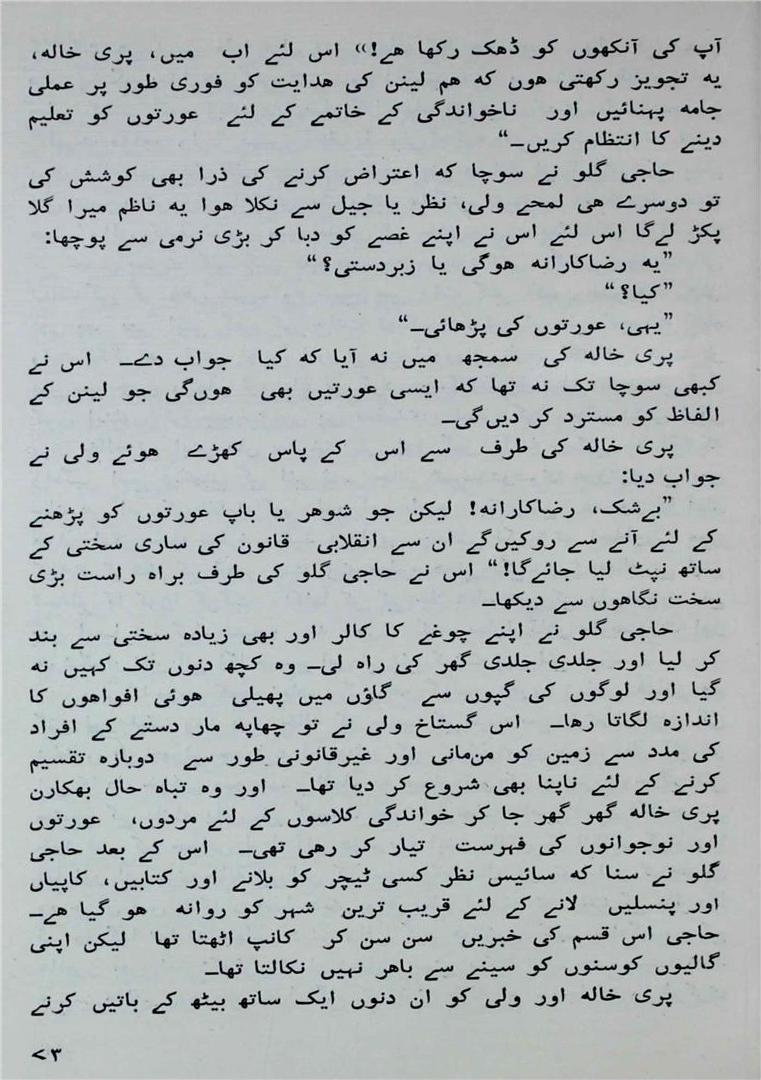 آپ کی آنکھوں کو ڈھک رکھا ھے!›› اس لئے اب میں، پری خالہ،
یہ تجویز رکھتی ھوں کہ ھم لینن کی ھدایت کو فوری طور پر عملی
جامہ پہنائیں اور ناخواندگی کے خاتمے کے لئے عورتوں کو تعلیم
دینے کا انتظام کریں۔“
حاجی گلو نے سوچا کہ اعتراض کرنے کی ذرا بھی کوشش کی
تو دوسرے ھی لمحے ولی، نظر یا جیل سے نکلا ھوا یہ ناظم میرا گلا
پکڑ لےگا اس لئے اس نے اپنے غصے کو دبا کر بڑی نرمی سے پوچھا:
”یہ رضاکارانہ ھوگی یا زبردستی؟“
”کیا؟“
”یہی، عورتوں کی پڑھائی۔“
پری خالہ کی سمجھ میں نہ آیا کہ کیا جواب دے۔ اس نے
کبھی سوچا تک نہ تھا کہ ایسی عورتیں بھی ھوں‌گی جو لینن کے
الفاظ کو مسترد کر دیں‌گی۔
پری خالہ کی طرف سے اس کے پاس کھڑے ھوئے ولی نے
جواب دیا:
”بےشک، رضاکارانہ! لیکن جو شوھر یا باپ عورتوں کو پڑھنے
کے لئے آنے سے روکیں‌گے ان سے انقلابی قانون کی ساری سختی کے
ساتھ نپٹ لیا جائےگا!“ اس نے حاجی گلو کی طرف براہ راست بڑی
سخت نگاھوں سے دیکھا۔
حاجی گلو نے اپنے چوغے کا کالر اور بھی زیادہ سختی سے بند
کر لیا اور جلدی جلدی گھر کی راہ لی۔ وہ کچھ دنوں تک کہیں نہ
گیا اور لوگوں کی گپوں سے گاؤں میں پھیلی ھوئی افواھوں کا
اندازہ لگاتا رھا۔ اس گستاخ ولی نے تو چھاپہ مار دستے کے افراد
کی مدد سے زمین کو من‌مانی اور غیرقانونی طور سے دوبارہ تقسیم
کرنے کے لئے ناپنا بھی شروع کر دیا تھا۔ اور وہ تباہ حال بھکارن
پری خالہ گھر گھر جا کر خواندگی کلاسوں کے لئے مردوں، عورتوں
اور نوجوانوں کی فہرست تیار کر رھی تھی۔ اس کے بعد حاجی
گلو نے سنا کہ سائیس نظر کسی ٹیچر کو بلانے اور کتابیں، کاپیاں
اور پنسلیں لانے کے لئے قریب ترین شہر کو روانہ ھو گیا ھے۔
حاجی اس قسم کی خبریں سن سن کر کانپ اٹھتا تھا لیکن اپنی
گالیوں کوسنوں کو سینے سے باھر نہیں نکالتا تھا۔
پری خالہ اور ولی کو ان دنوں ایک ساتھ بیٹھ کے باتیں کرنے
۷۳